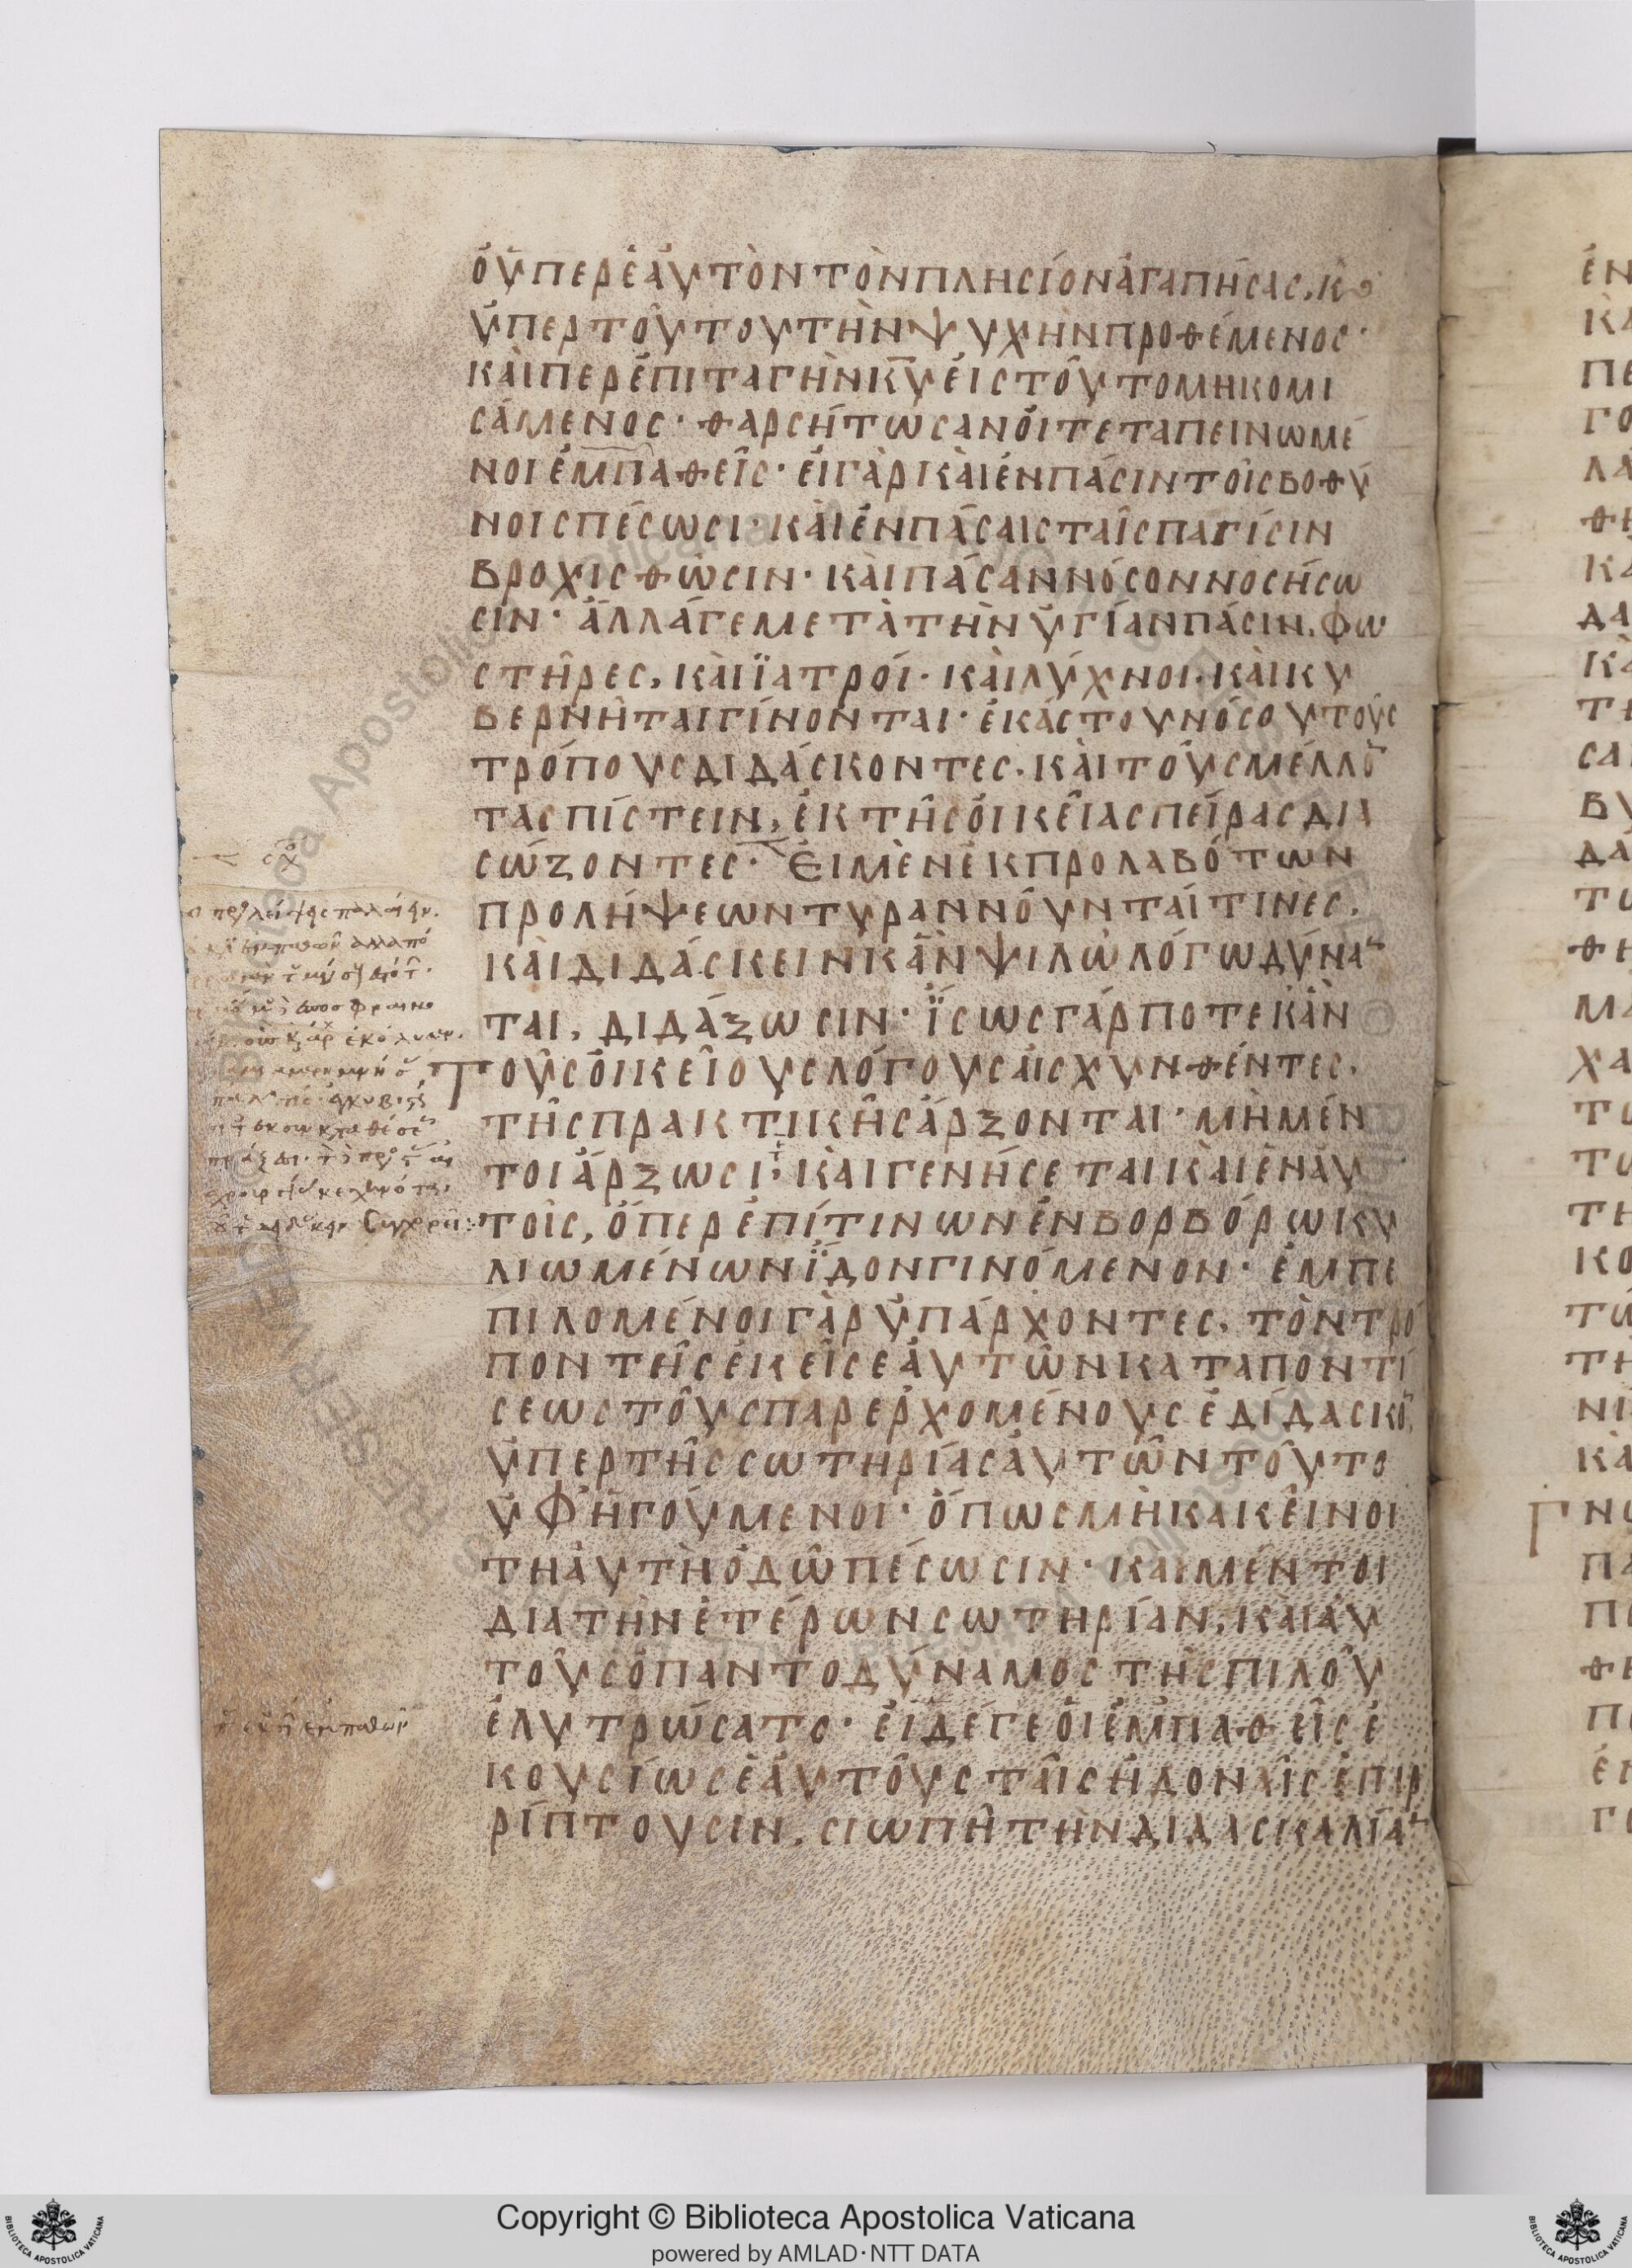 ὁ ὑπὲρ ἑαυτὸν τὸν πλησίον ἀγαπήσας, κ
ὑπὲρ τούτου τὴν ψυχὴν προθέμενος·
καίπερ ἐπιταγὴν κυ εἰς τοῦτο μὴ κομι
σάμενος· θαρσήτωσαν οἱ τεταπεινωμέ
νοι ἐμπαθεῖς· εἰ γὰρ καὶ ἐν πάσιν τοῖς βοθύ
νοις πέσωσι· καὶ ἐν πάσαις ταῖς παγίσιν
βροχισθῶσιν· καὶ πάσαν νόσον νοσήσω
σιν· ἀλλάγε μετὰ τὴν ὑγίαν πάσιν, φω
στῆρες, καὶ ϊατροί· καὶ λύχνοι, καὶ κυ
βερνῆται γίνονται· ἑκάστου νόσου τοὺς
τρόπους διδάσκοντες· καὶ τοὺς μέλλο
τας πίπτειν, ἐκ τῆς οἰκείας πείρας δια
σώζοντες· Εἰ μὲν ἐκ προλαβότων
προλήψεων τυραννοῦνταί τινες,
καὶ διδάσκειν κἂν ψιλῶ λόγω δύναν
ται, διδάξωσιν· ἴσως γάρ ποτε κἂν
Τοὺς οἰκείους λόγους αἰσχυνθέντες,
τῆς πρακτικῆς ἄρξονται· μὴ μέν
τοι ἄρξωσι, καὶ γενήσεται καὶ ἐν αὐ
τοῖς, ὅπερ ἐπί τινων ἐν βορβόρω κυ
λιωμένων ἴδον γινόμενον· ἐμπε
πιλομένοι γὰρ ὑπάρχοντες, τὸν τρό
πον τῆς ἐκεῖσε αὐτῶν καταποντί
σεως τοὺς παρερχομένους ἐδίδασκο,
ὑπὲρ τῆς σωτηρίας αὐτῶν τοῦτο
ὑφηγούμενοι· ὅπως μὴ κακεῖνοι
τῆ αὐτῆ ὁδῶ πέσωσιν· καὶ μέντοι
δια τὴν ἑτέρων σωτηρίαν, καὶ αὐ
τοὺς ὁ παντοδύναμος τῆς πιλοῦ
ἐλυτρώσατο· εἰ δέ γε οἱ ἐμπαθεῖς ἑ
κουσίως ἑαυτοὺς ταῖς ἡδοναῖς ἐπιρ
ρίπτουσιν, σιωπῆ τὴν διδασκαλίαν
Copyright © Biblioteca Apostolica Vaticana
powered by AMLAD·NTT DATA